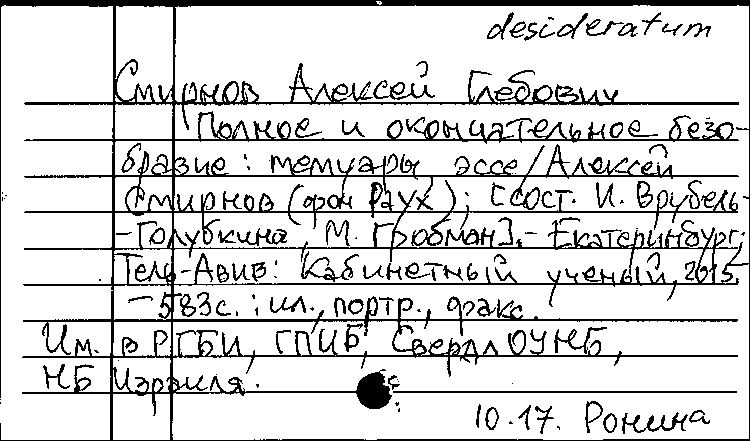 desideratum
Смирнов Алексей Глебович
Полное и окончательное безо-
бразие : мемуары, эссе / Алексей
Смирнов (фон Раух) ; [сост. И. Врубель-
-Голубкина, М. Гробман]. - Екатеринбург;
Тель-Авив: Кабинетный ученый, 2015.
- 583с. : ил., портр., факс.
Им. в РГБИ, ГПИБ, СвердлОУНБ,
НБ Израиля.
10.17. Ронина